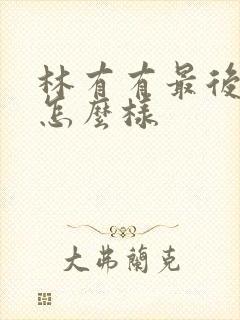 林有有最後
怎麼樣
大弗蘭克